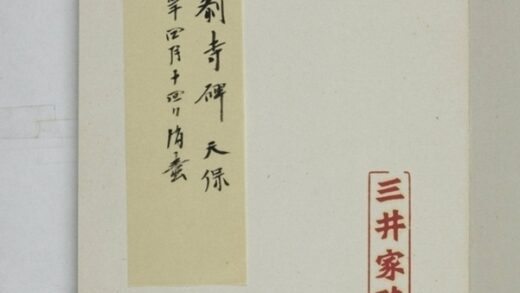 寺碑 天保
年四月十四日消蠹
三井家